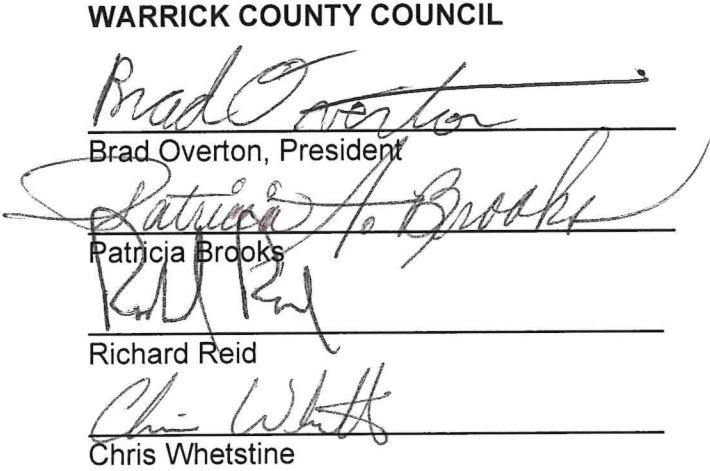 WARRICK COUNTY COUNCIL
Brad Overton
Brad Overton, President
Patricia A. Brooks
Patricia Brooks
Richard Reid
Chris Whetstine